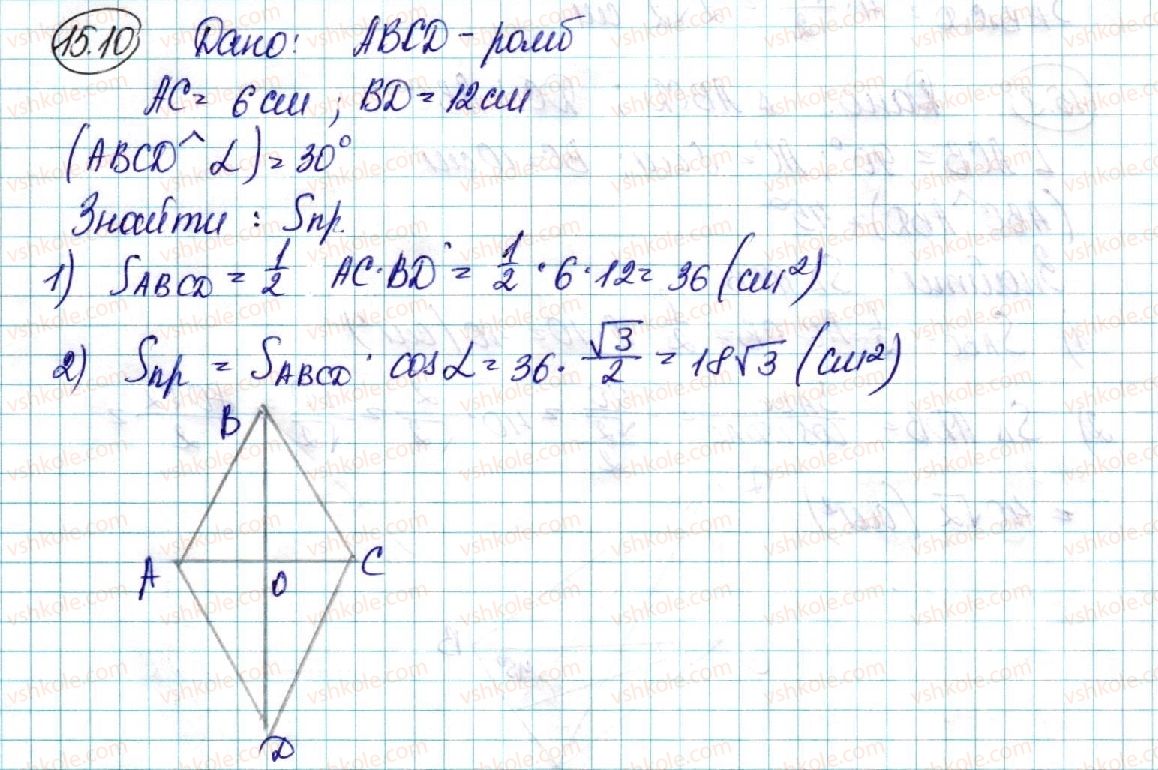 15.10 Дано: ABCD - ромб
AC = 6 см ; BD = 12 см
(ABCD ^ α) = 30°
Знайти : Sпр.
1) SABCD = 1/2 AC · BD = 1/2 · 6 · 12 = 36 (см²)
2) Sпр = SABCD · cos α = 36 · √3/2 = 18√3 (см²)
B
A
O
C
D
vshkole.com